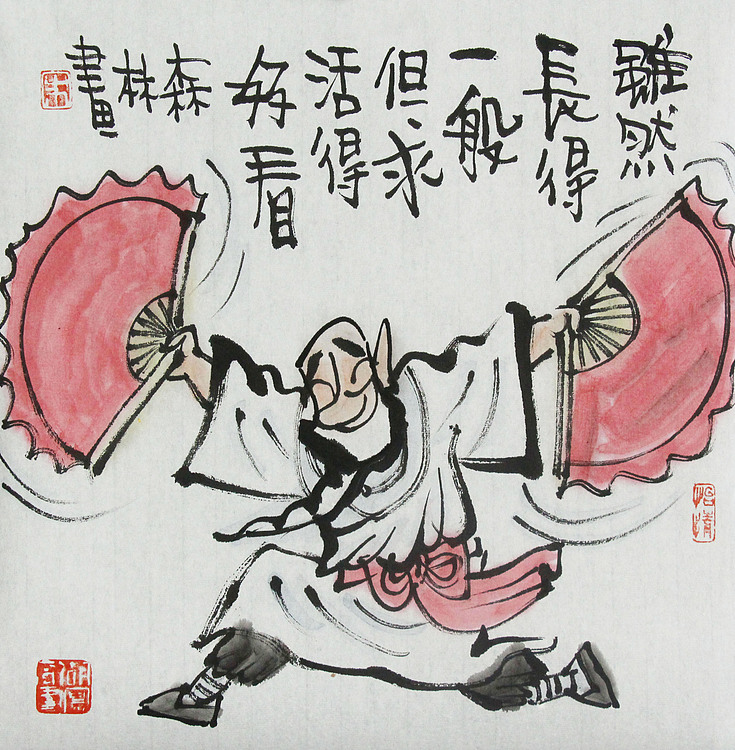 雖然
長得
一般
但求
活得
好看
森林畫
怡情